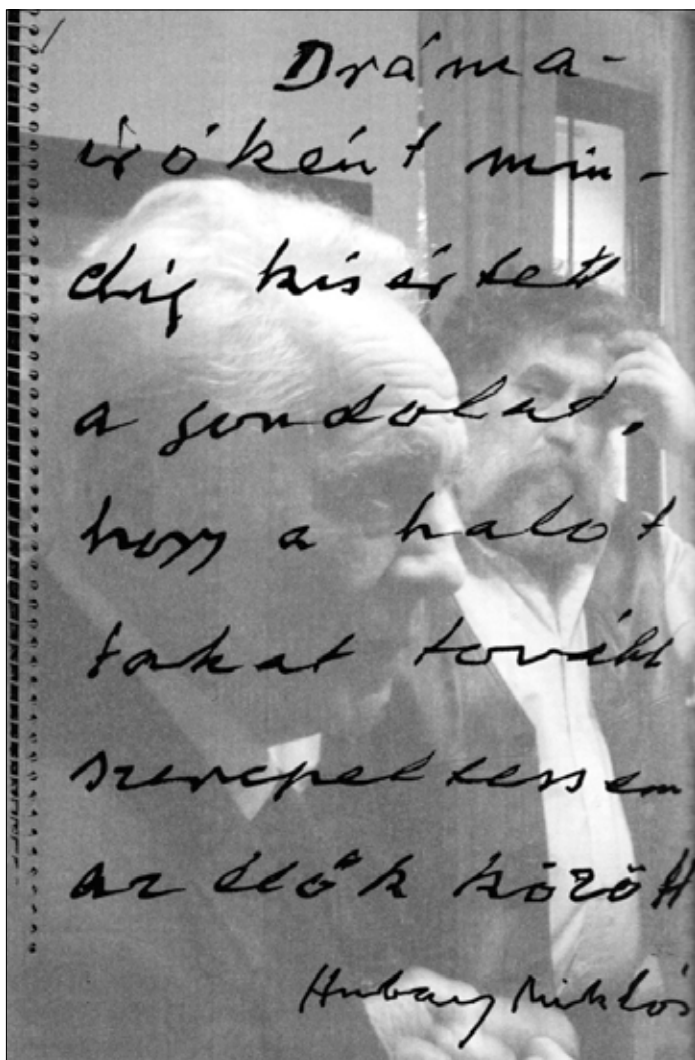 Dráma-
íróként min-
dig kisértett
a gondolat,
hogy a halot
takat tovább
szerepeltessem
az élők között
Hubay Miklós